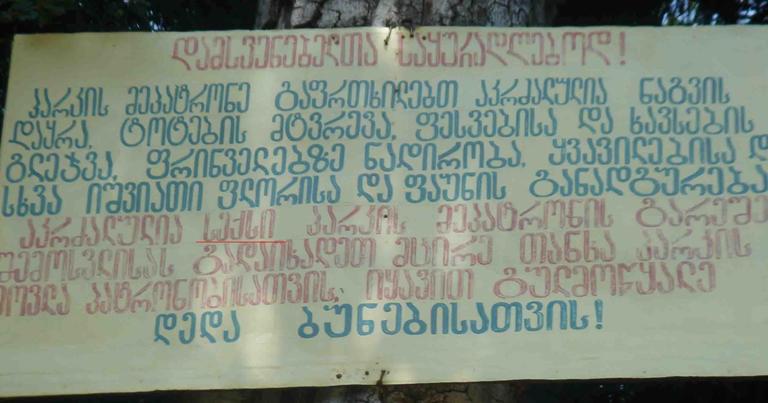 დამსვენებელთა საყურადღებოდ!
პარკის მეპატრონე გაფრთხილებთ აკრძალულია ნაგვის
დაყრა, ტოტების მტვრევა, ფესვებისა და ხავსების
გლეჯვა, ფრინველებზე ნადირობა, ყვავილებისა დ
სხვა იშვიათი ფლორისა და ფაუნის განადგურება
აკრძალულია სექსი პარკის მეპატრონის გარეშე
შემოსვლისას გადაიხადეთ მცირე თანხა პარკის
მოვლა პატრონობისათვის, იყავით გულმოწყალე
დედა ბუნებისათვის!